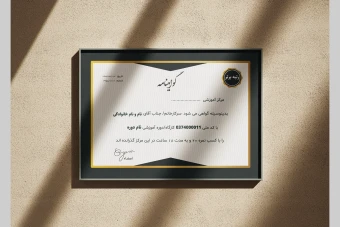 گواهینامه
رتبه برتر
مرکز آموزشی ............................
بدینوسیله گواهی می شود سرکار خانم/ جناب آقای نام و نام خانوادگی
با کد ملی 0374000011 کارگاه/دوره آموزشی نام دوره
را با کسب نمره ۲۰ و به مدت ۱۰ ساعت در این مرکز گذرانده اند
امضاء